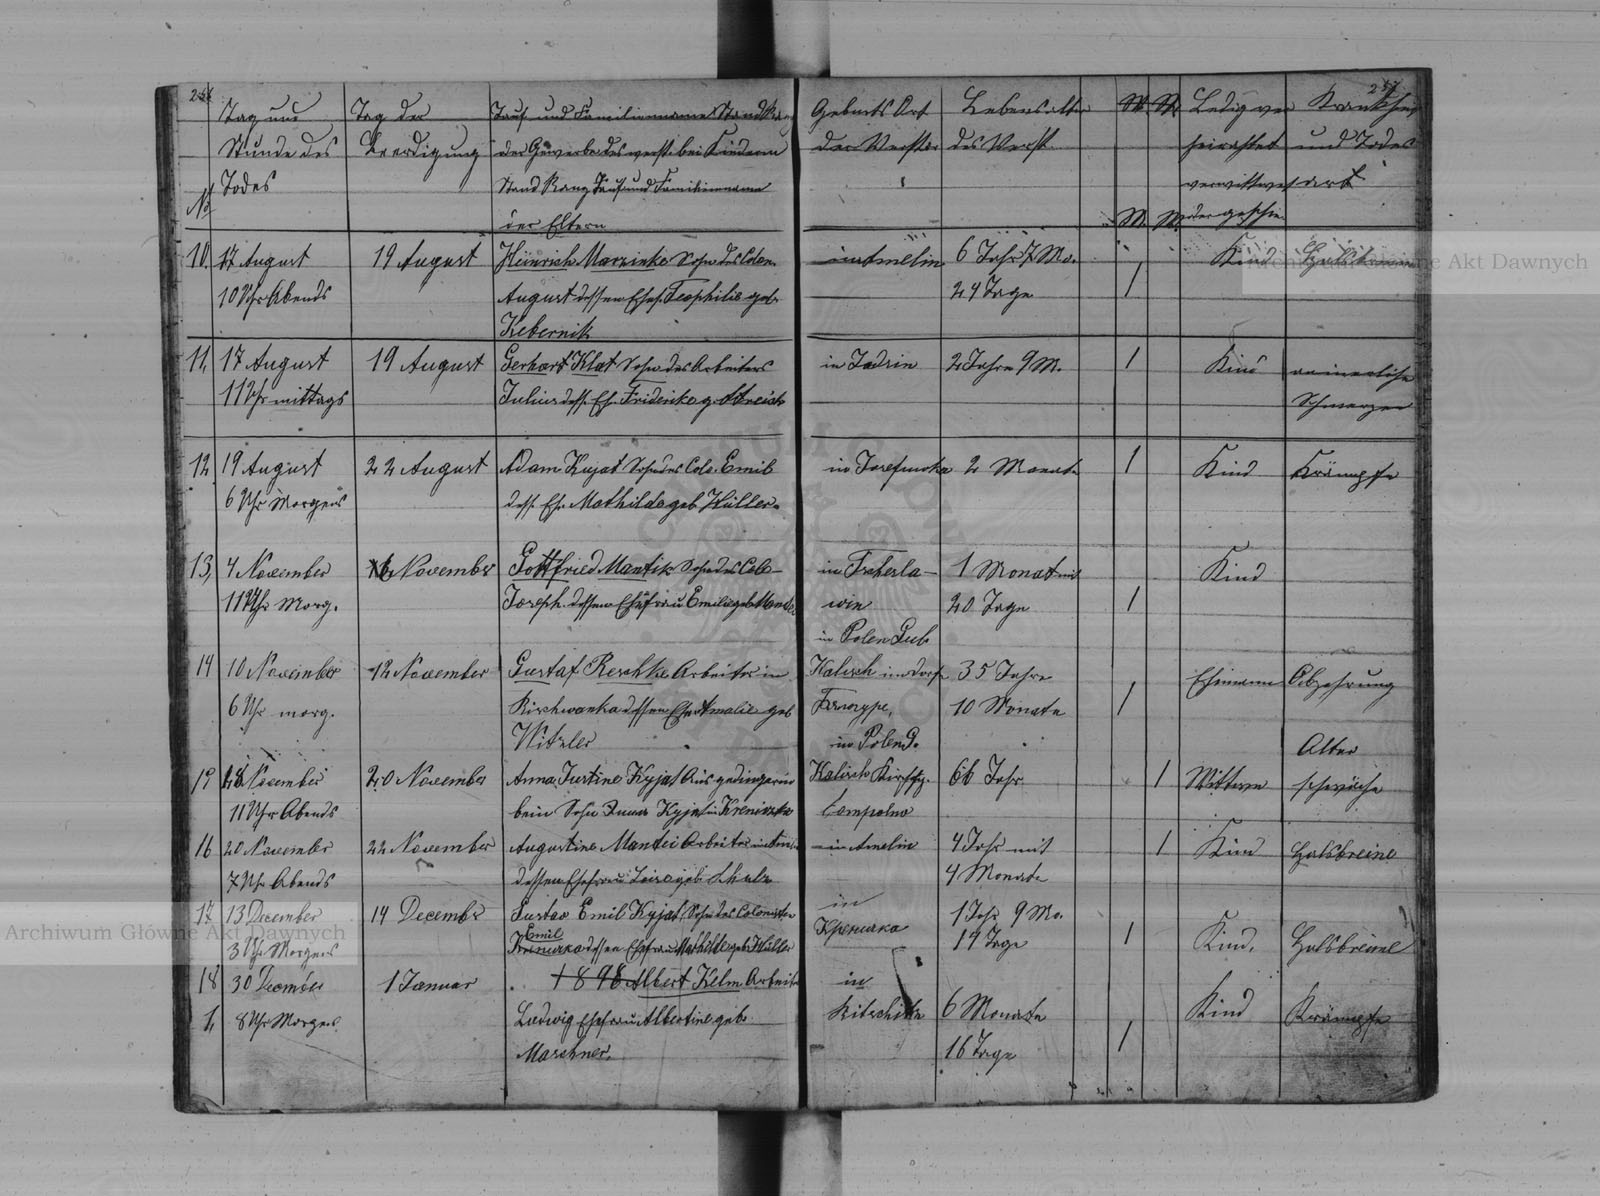 256
257
Tag und
Stunde des
Todes
No
Tag der
Beerdigung
Tauf und Familienname Stand Rang
der Gewerbe des verst. bei Kindern
Stand Rang Tauf und Familienname
der Eltern
Geburts Ort
der Verstor
Lebensalter
des Verst.
M. W.
Ledig ver
heirathet
verwittwet
oder geschie
Krankheit
und Todes
art
10. 17 August
10 Uhr Abends
19 August
Heinrich Marzinke Sohn des Colon.
August dessen Ehef. Teophilie geb
Kebernik
in Amelin
6 Jahr 7 Mo.
24 Tage
1
Kind
Halsbreune
11, 17 August
11 Uhr mittags
19 August
Gerhart Klat Sohn des Arbeiters
Julius dess. Eh. Friderike g.
in Jadrin
2 Jahre 9 M.
1
Kind
Schmerzen
12 19 August
6 Uhr Morgens
22 August
Adam Kujat Sohn des Colo. Emil
dess. Ehe. Mathilde geb Hüller.
in Josefowka
2 Monate
1
Kind
Krämpfe
13, 4 November
11 Uhr Morg.
6 November
Gottfried Mantik Sohn des Colo-
Joseph. dessen Ehefrau Emilie geb
in
win
1 Monat
20 Tage
1
Kind
14 10 November
6 Uhr morg.
12 November
Gustaf Reschke Arbeiter in
dessen Ehe Amalie geb
Witzler
in Polen Gub
Kalisch im Dorfe
35 Jahre
10 Monate
1
Ehemann
Abzehrung
15 18 November
11 Uhr Abends
20 November
Anna Justine Kyjat Ausgedingerin
beim Sohn Kyjat in
in Polen G.
Kalisch Kirchsp.
66 Jahr
1
Wittwe
Alter
schwäche
16 20 November
7 Uhr Abends
22 November
Augustine Mantei Arbeiter
dessen Ehefrau geb. Schulz
in Amelin
4 Jahr mit
4 Monate
1
Kind
Halsbreine
17 13 December
3 Uhr Morgens
14 December
Gustav Emil Kyjat Sohn des Colonisten
Emil
dessen Ehefrau Mathilde geb. Hüller
in
1 Jahr 9 Mo.
19 Tage
1
Kind,
Halsbreune
18 30 December
1, 8 Uhr Morgens
1 Januar
1898 Albert Kelm Arbeiter
Ludwig Ehefrau Albertine geb.
Marschner,
in
6 Monate
16 Tage
1
Kind
Krämpfe
Archiwum Główne Akt Dawnych
Archiwum Główne Akt Dawnych